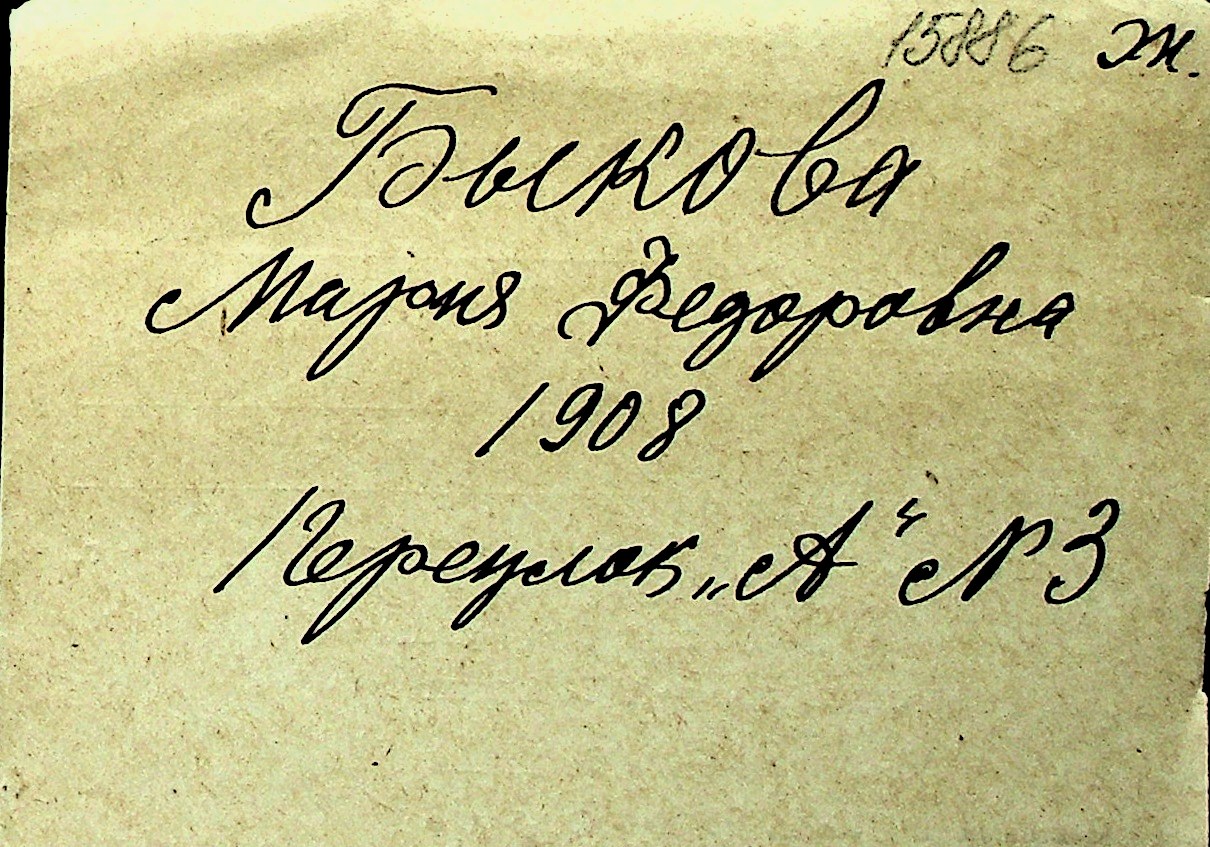 15886 ж.
Быкова
Мария Федоровна
1908
Переулок „А“ N 3